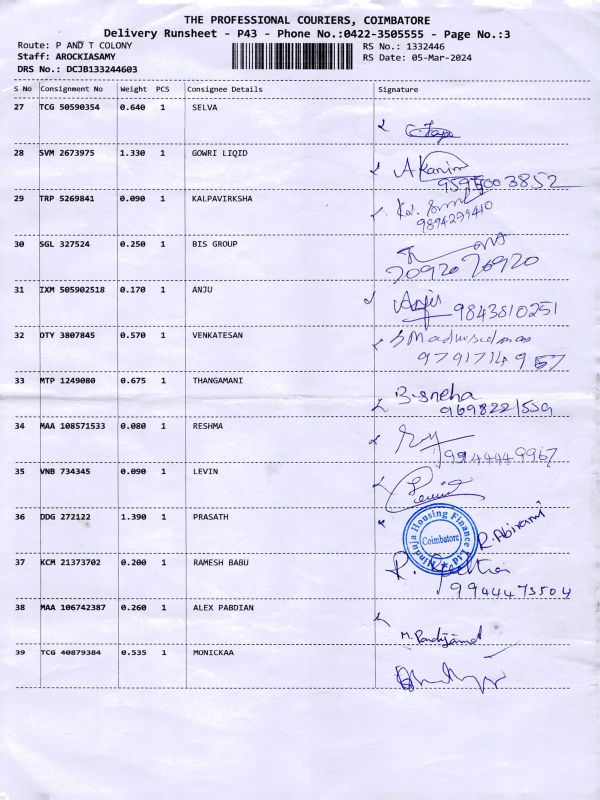 THE PROFESSIONAL COURIERS, COIMBATORE
Delivery Runsheet - P43 - Phone No.:0422-3505555 - Page No.:3
Route: P AND T COLONY RS No.: 1332446
Staff: AROCKIASAMY RS Date: 05-Mar-2024
DRS No.: DCJB133244603
S No Consignment No Weight PCS Consignee Details Signature
27 TCG 50590354 0.640 1 SELVA
28 SVM 2673975 1.330 1 GOWRI LIQID
29 TRP 5269841 0.090 1 KALPAVIRKSHA
9894299410
30 SGL 327524 0.250 1 BIS GROUP
70920 70920
31 IXM 505902518 0.170 1 ANJU
Anjis 9843810251
32 DTY 3807845 0.570 1 VENKATESAN
9791714957
33 MTP 1249080 0.675 1 THANGAMANI
B. sneha
9698221559
34 MAA 108571533 0.080 1 RESHMA
9944449967
35 VNB 734345 0.090 1 LEVIN
36 DDG 272122 1.390 1 PRASATH
Hinduja Housing Finance Ltd
Coimbatore
R. Abirami
37 KCM 21373702 0.200 1 RAMESH BABU
9944473504
38 MAA 106742387 0.260 1 ALEX PABDIAN
39 TCG 40879384 0.535 1 MONICKAA